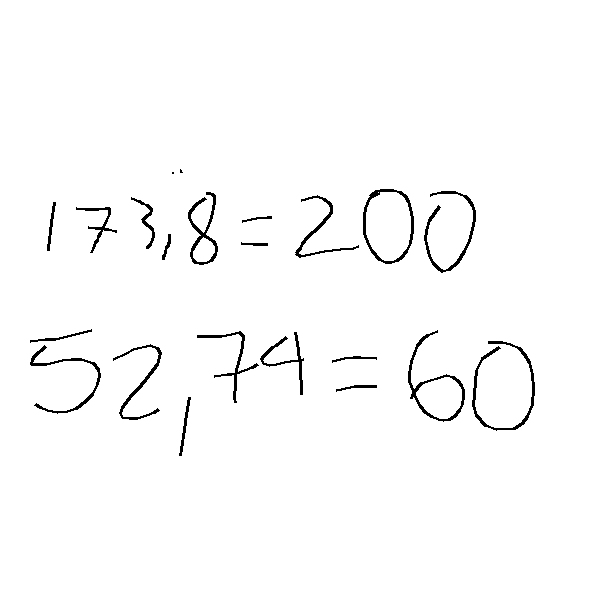 173,8=200
52,74=60